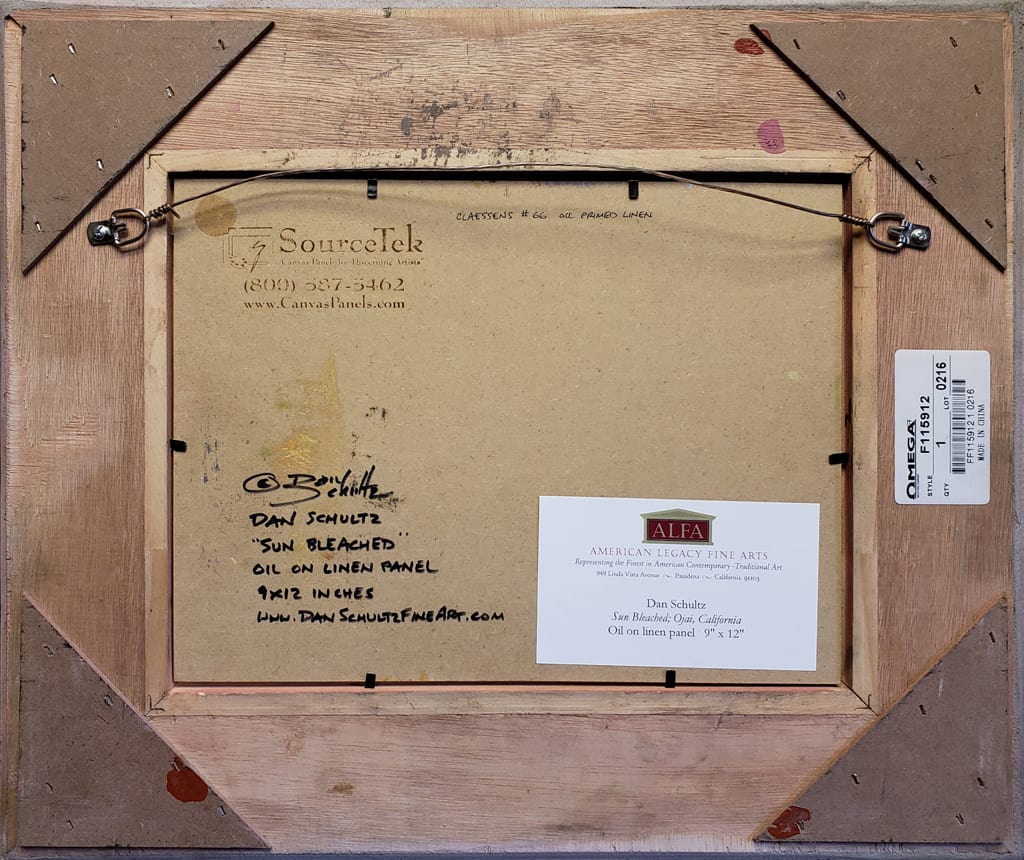 CLAESSENS # 66 OIL PRIMED LINEN
SourceTek
Canvas Panels for Discerning Artists
(800) 587-5462
www.CanvasPanels.com
© Dan Schultz
DAN SCHULTZ
"SUN BLEACHED"
OIL ON LINEN PANEL
9X12 INCHES
WWW.DANSCHULTZFINEART.COM
ALFA
AMERICAN LEGACY FINE ARTS
Representing the Finest in American Contemporary-Traditional Art
949 Linda Vista Avenue ~ Pasadena ~ California 91103
Dan Schultz
Sun Bleached; Ojai, California
Oil on linen panel 9" x 12"
OMEGA
STYLE F115912
QTY 1 LOT 0216
FF115912 1 0216
MADE IN CHINA